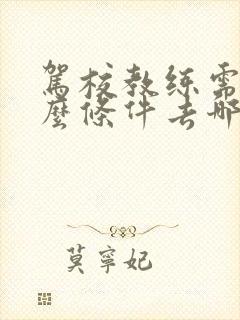 駕校教練需
麼條件去哪
莫寧妃